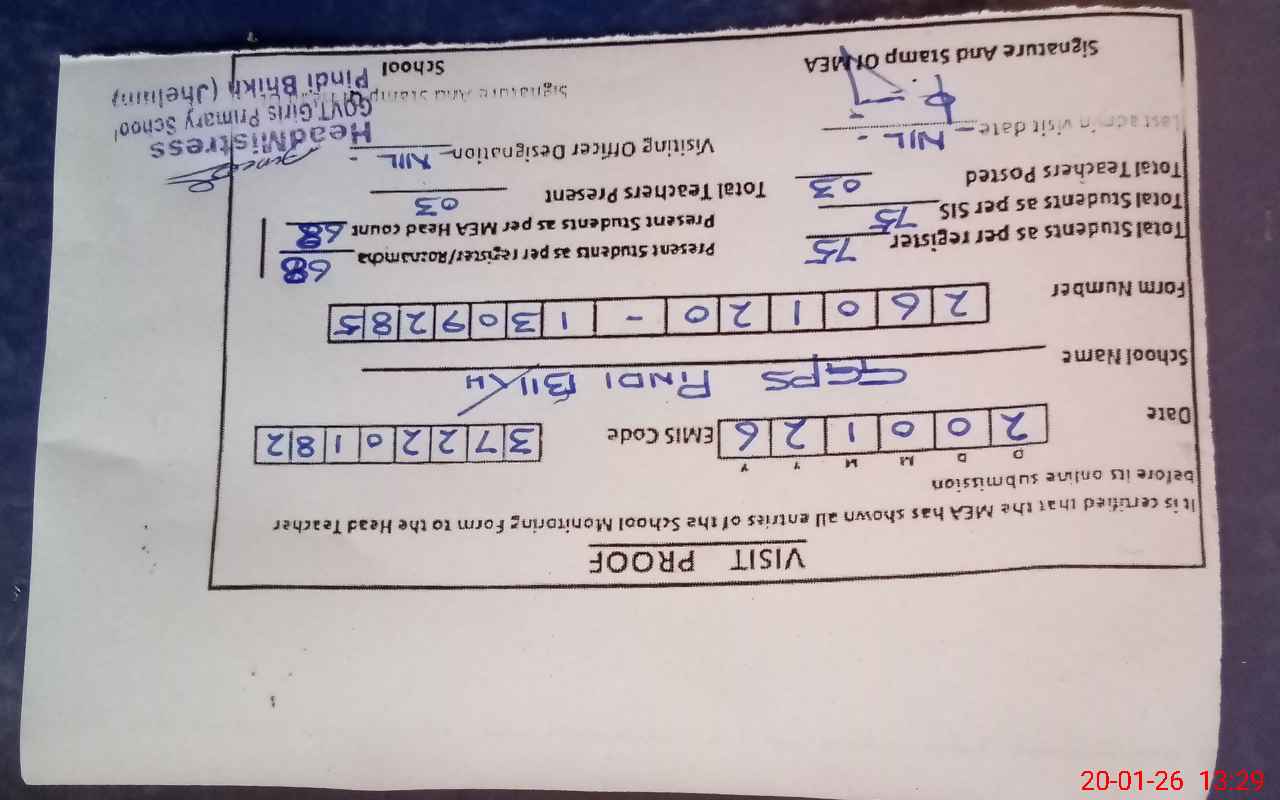 VISIT PROOF
It is certified that the MEA has shown all entries of the School Monitoring Form to the Head Teacher
before its online submission
D D M M Y Y
Date 2 0 0 1 2 6 EMIS Code 3 7 2 2 0 1 8 2
School Name GGPS PINDI BHIKH
Form Number 2 6 0 1 2 0 - 1 3 0 9 2 8 5
Total Students as per register 75 Present Students as per register/Roznamcha 68
Total Students as per SIS 75 Present Students as per MEA Head count 68
Total Teachers Posted 03 Total Teachers Present 03
Last admin visit date NIL Visiting Officer Designation NIL
Signature And Stamp Of MEA
Signature And Stamp
School
HeadMistress
GOVT. Girls Primary School
Pindi Bhikh (Jhelum)
20-01-26 13:29